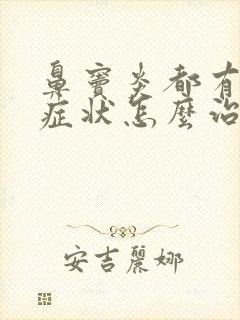 鼻窦炎都有
症状怎麼治
安吉麗娜